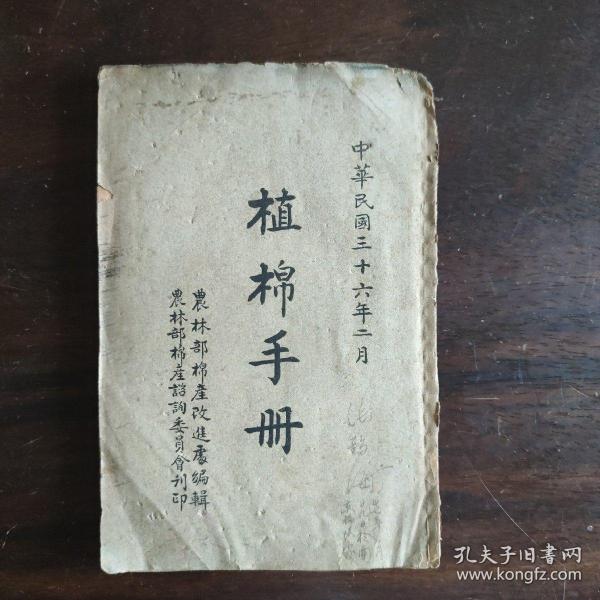 中華民國三十六年二月
植棉手册
農林部棉產改進處編輯
農林部棉產諮詢委員會刊印
孔夫子旧书网
www.kongfz.com